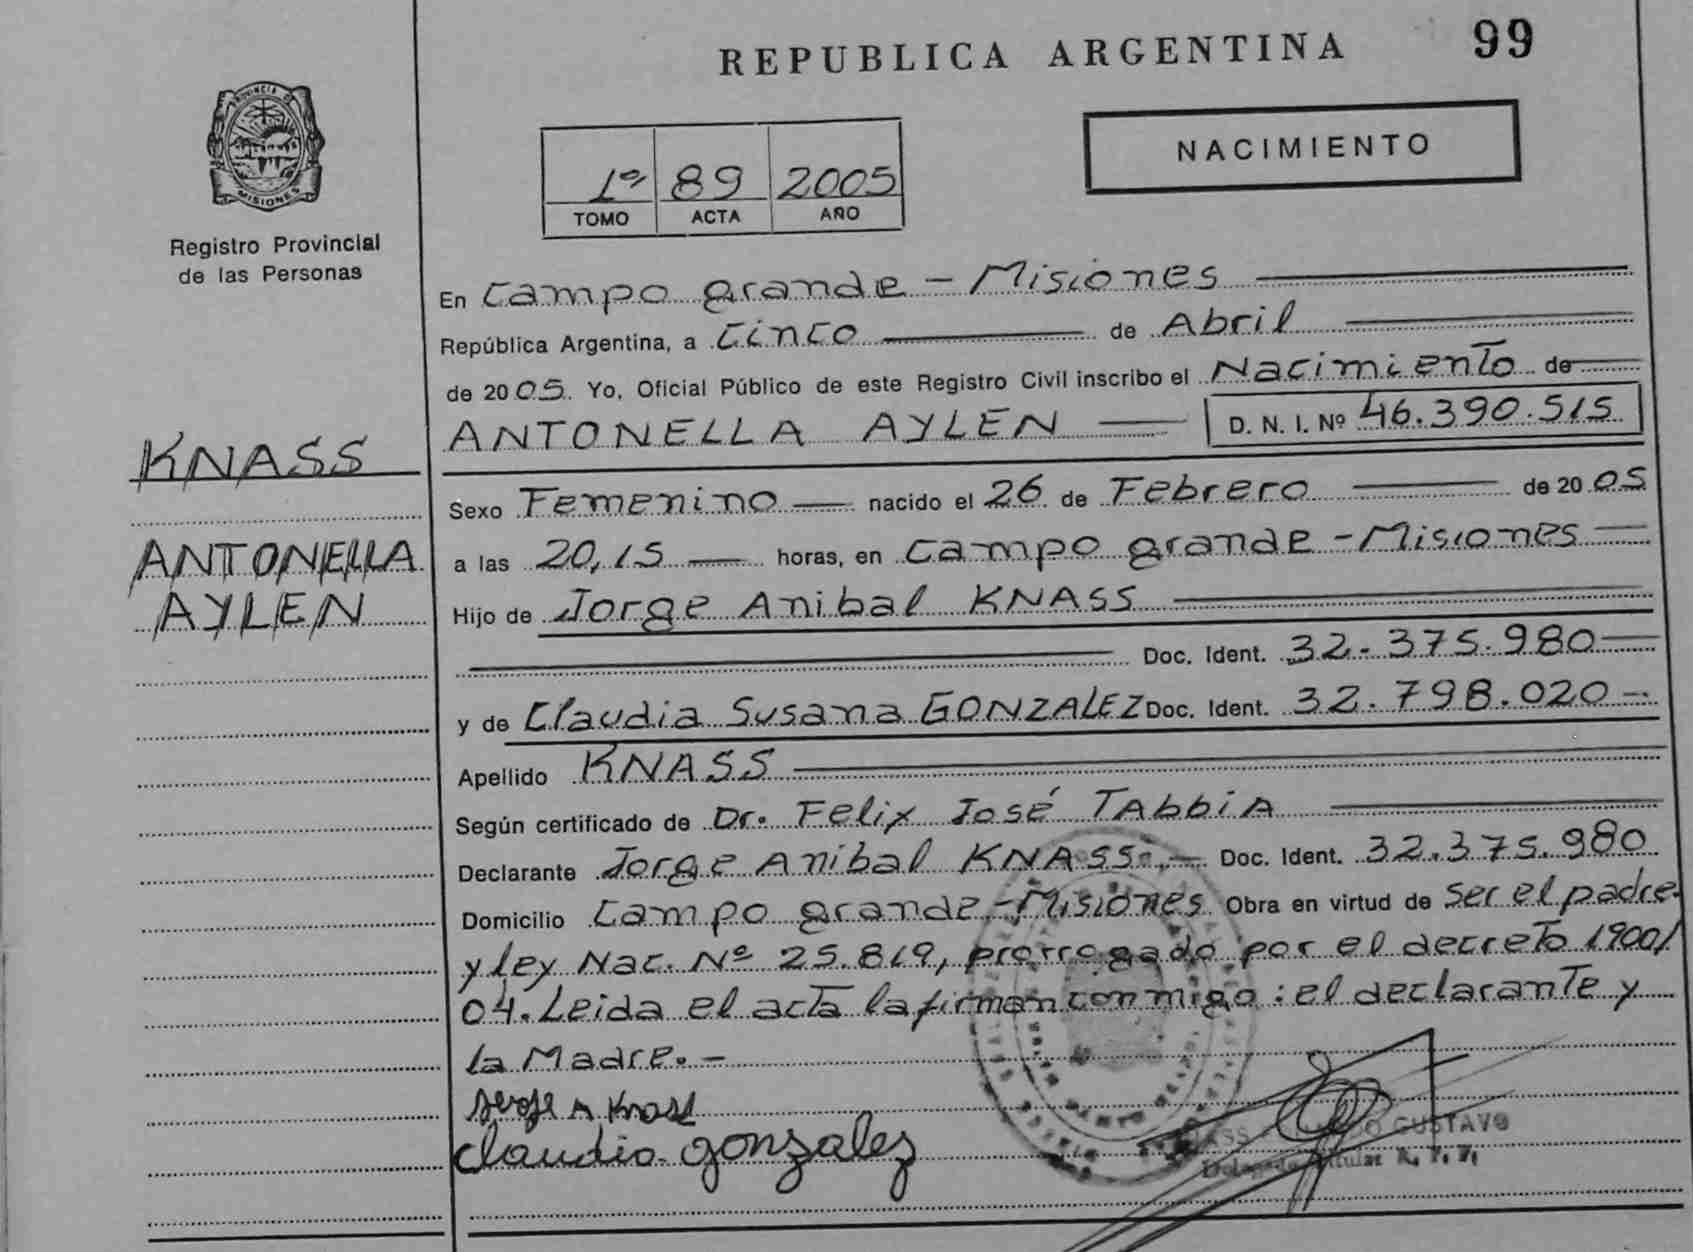 REPUBLICA ARGENTINA 99
PROVINCIA DE
MISIONES
Registro Provincial
de las Personas
NACIMIENTO
1º 89 2005
TOMO ACTA AÑO
En Campo grande - Misiones
República Argentina, a Cinco de Abril
de 2005. Yo, Oficial Público de este Registro Civil inscribo el Nacimiento de
ANTONELLA AYLEN D. N. I. Nº 46.390.515
KNASS
Sexo Femenino nacido el 26 de Febrero de 2005
ANTONELLA
a las 20,15 horas, en Campo grande - Misiones
AYLEN
Hijo de Jorge Anibal KNASS
Doc. Ident. 32.375.980
y de Claudia Susana GONZALEZ Doc. Ident. 32.798.020-
Apellido KNASS
Según certificado de Dr. Felix José TAbbiA
Declarante Jorge Anibal KNASS.- Doc. Ident. 32.375.980
Domicilio Campo grande - Misiones Obra en virtud de ser el padre
y ley Nac. Nº 25.819, prorrogado por el decreto 1900/
04. Leida el acta la firman conmigo: el declarante y
la Madre.-
Jorge A Knass
claudia gonzalez
GUSTAVO